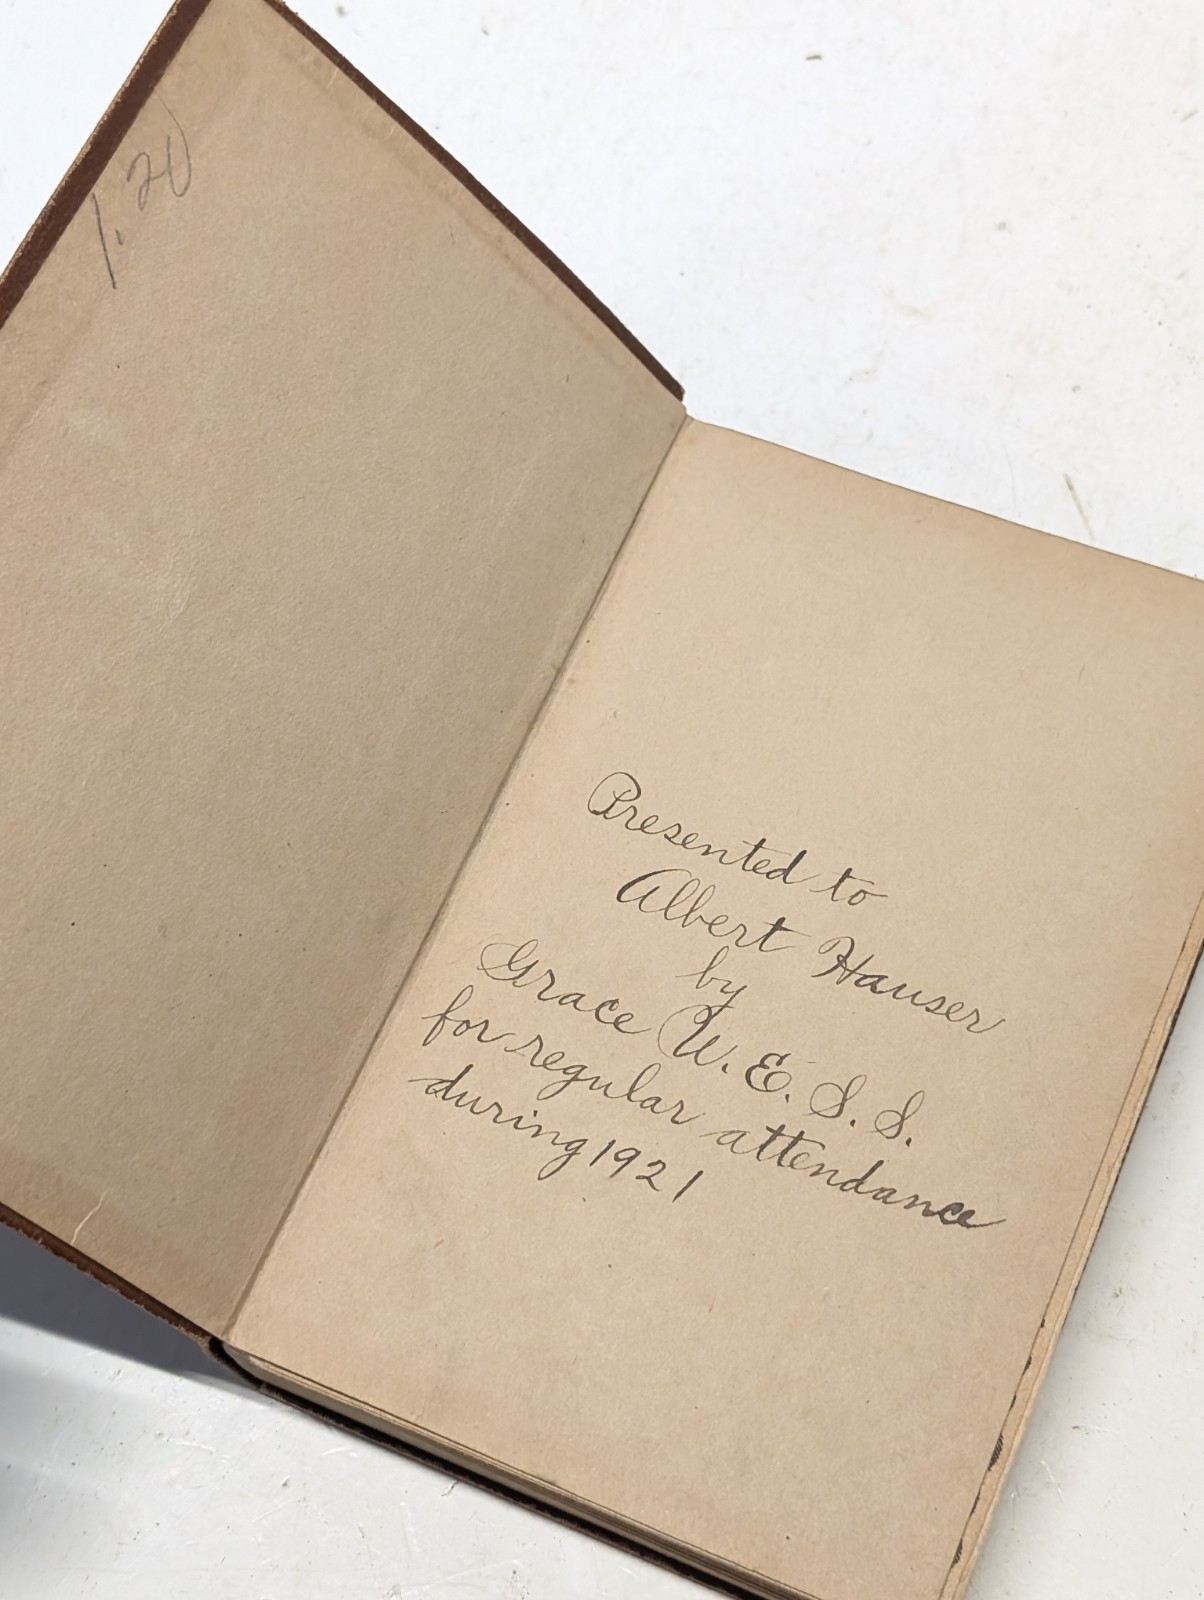 1.20
Presented to
Albert Hauser
by
Grace U. E. S. S.
for regular attendance
during 1921